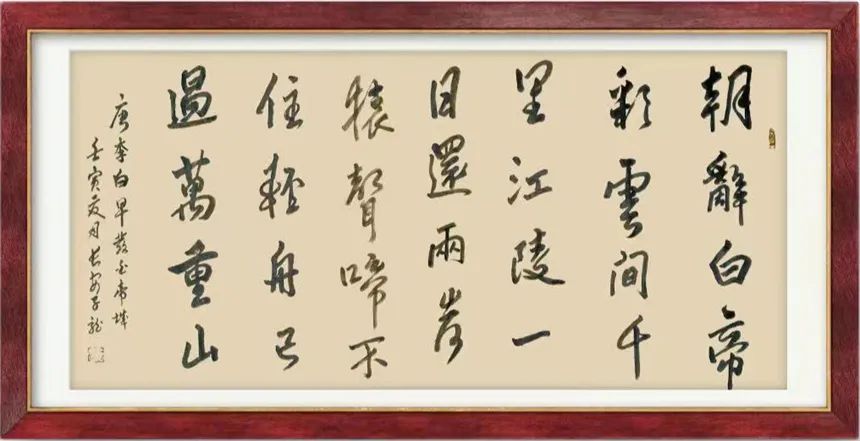 朝辭白帝
彩雲間千
里江陵一
日還兩岸
猿聲啼不
住輕舟已
過萬重山
唐李白早發白帝城
壬寅夏月長安子龍